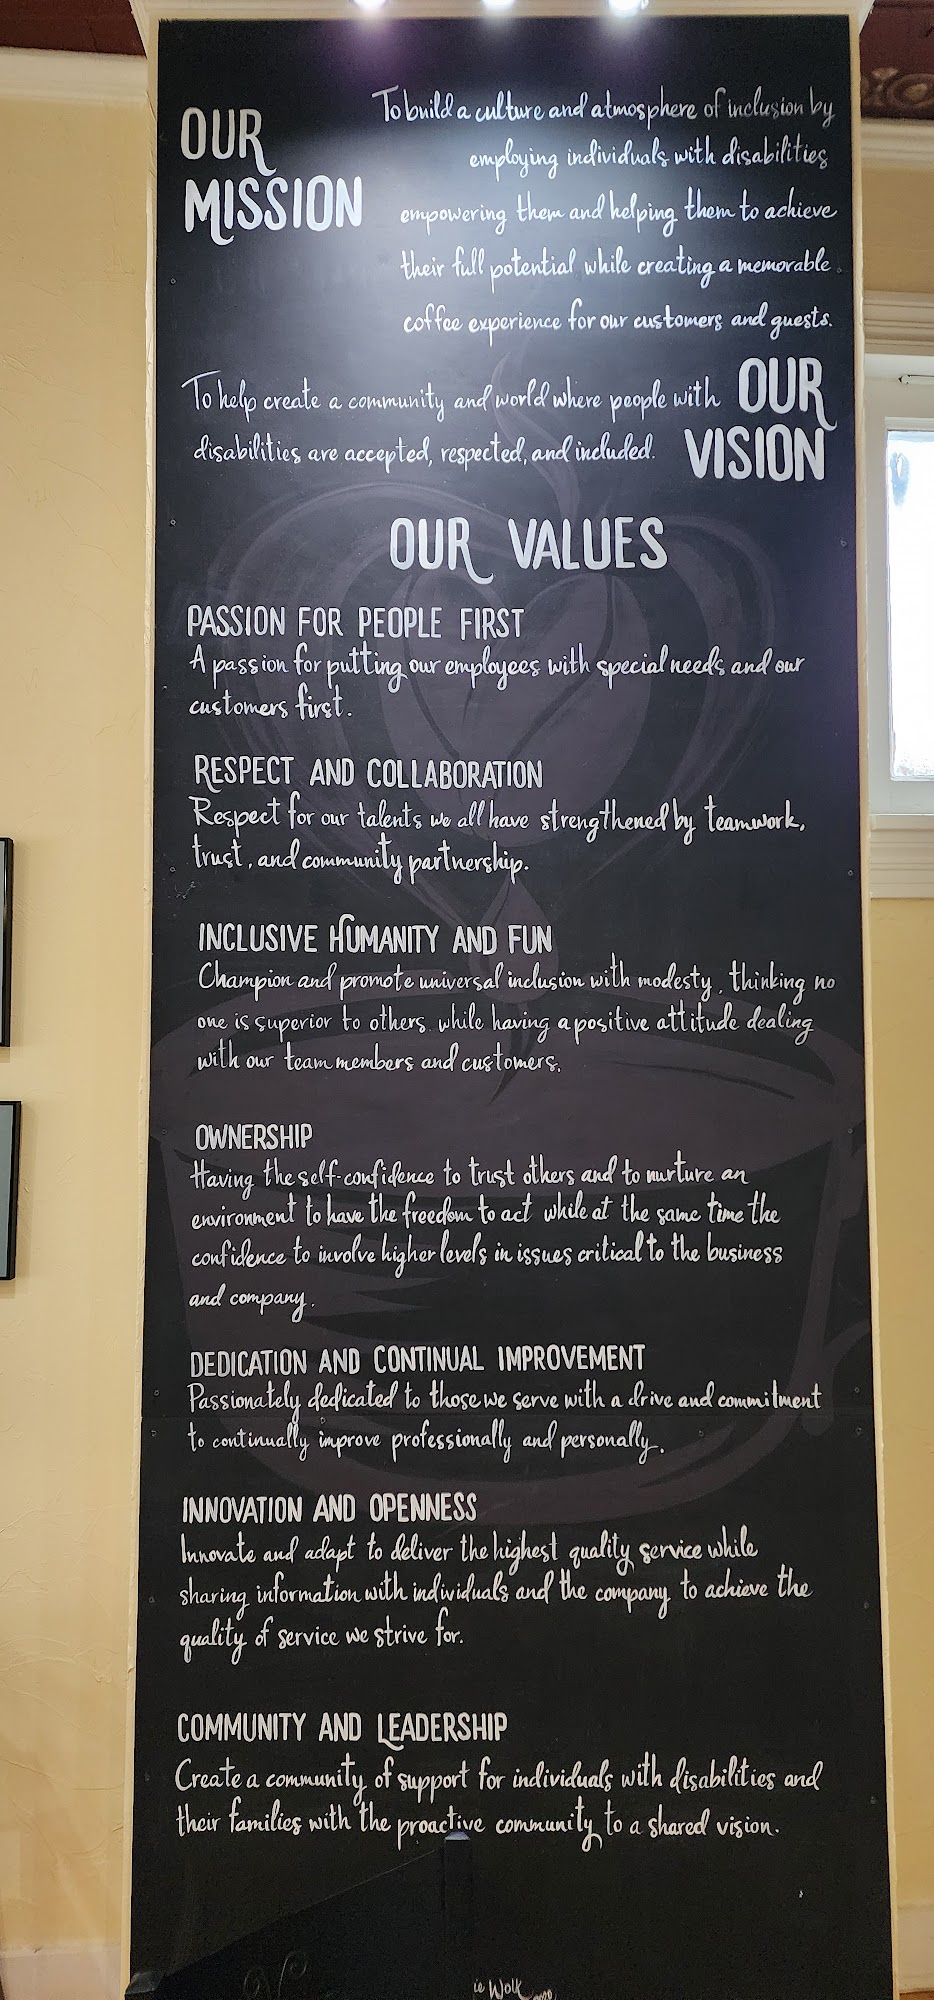 OUR
MISSION
To build a culture and atmosphere of inclusion by
employing individuals with disabilities
empowering them and helping them to achieve
their full potential while creating a memorable
coffee experience for our customers and guests.
To help create a community and world where people with
disabilities are accepted, respected, and included.
OUR
VISION
OUR VALUES
PASSION FOR PEOPLE FIRST
A passion for putting our employees with special needs and our
customers first.
RESPECT AND COLLABORATION
Respect for our talents we all have strengthened by teamwork,
trust, and community partnership.
INCLUSIVE HUMANITY AND FUN
Champion and promote universal inclusion with modesty, thinking no
one is superior to others while having a positive attitude dealing
with our team members and customers.
OWNERSHIP
Having the self-confidence to trust others and to nurture an
environment to have the freedom to act while at the same time the
confidence to involve higher levels in issues critical to the business
and company.
DEDICATION AND CONTINUAL IMPROVEMENT
Passionately dedicated to those we serve with a drive and commitment
to continually improve professionally and personally.
INNOVATION AND OPENNESS
Innovate and adapt to deliver the highest quality service while
sharing information with individuals and the company to achieve the
quality of service we strive for.
COMMUNITY AND LEADERSHIP
Create a community of support for individuals with disabilities and
their families with the proactive community to a shared vision.